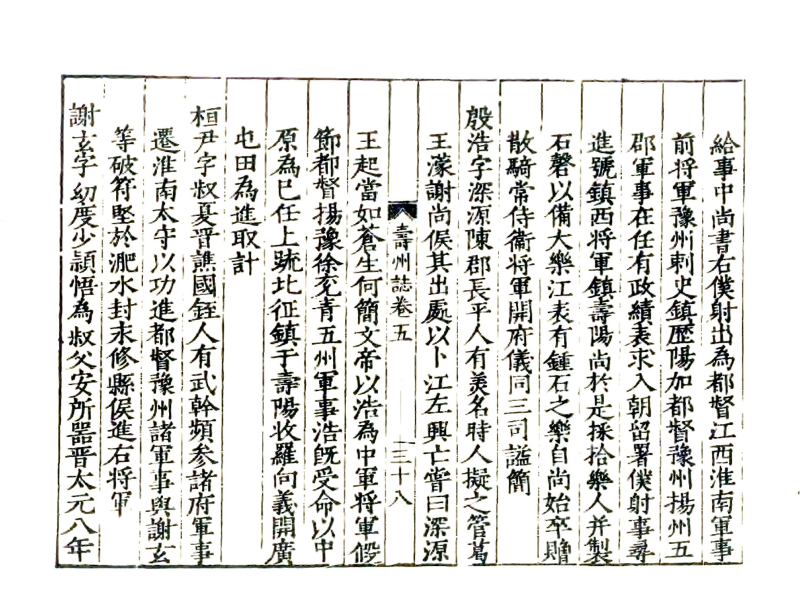 給事中尚書右僕射出為都督江西淮南軍事
前将軍豫州刺史鎮歷陽加都督豫州揚州五
郡軍事在任有政績表求入朝留署僕射事尋
進號鎮西将軍鎮壽陽尚於是採拾樂人并製
石磬以備大樂江表有鍾石之樂自尚始卒贈
散騎常侍衛将軍開府儀同三司謚簡
殷浩字深源陳郡長平人有美名時人擬之管葛
王濛謝尚候其出處以卜江左興亡嘗曰深源
壽州誌卷五
三十八
王起當如蒼生何簡文帝以浩為中軍将軍假
節都督揚豫徐兗青五州軍事浩既受命以中
原為已任上疏北征鎮于壽陽收羅向義開廣
屯田為進取計
桓尹字叔夏晋譙國銍人有武幹頻參諸府軍事
遷淮南太守以功進都督豫州諸軍事與謝玄
等破符堅於淝水封永修縣侯進右将軍
謝玄字幼度少頴悟為叔父安所器晋太元八年